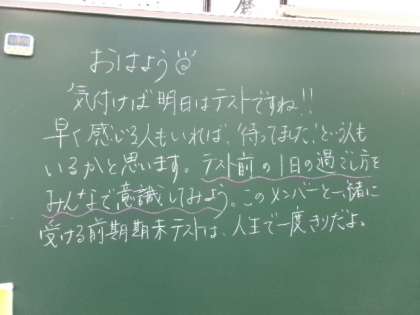 おはよう
気付けば明日はテストですね!!
早く感じる人もいれば、待ってました、という人も
いるかと思います。テスト前の1日の過ごし方を
みんなで意識してみよう。このメンバーと一緒に
受ける前期期末テストは、人生で一度きりだよ。